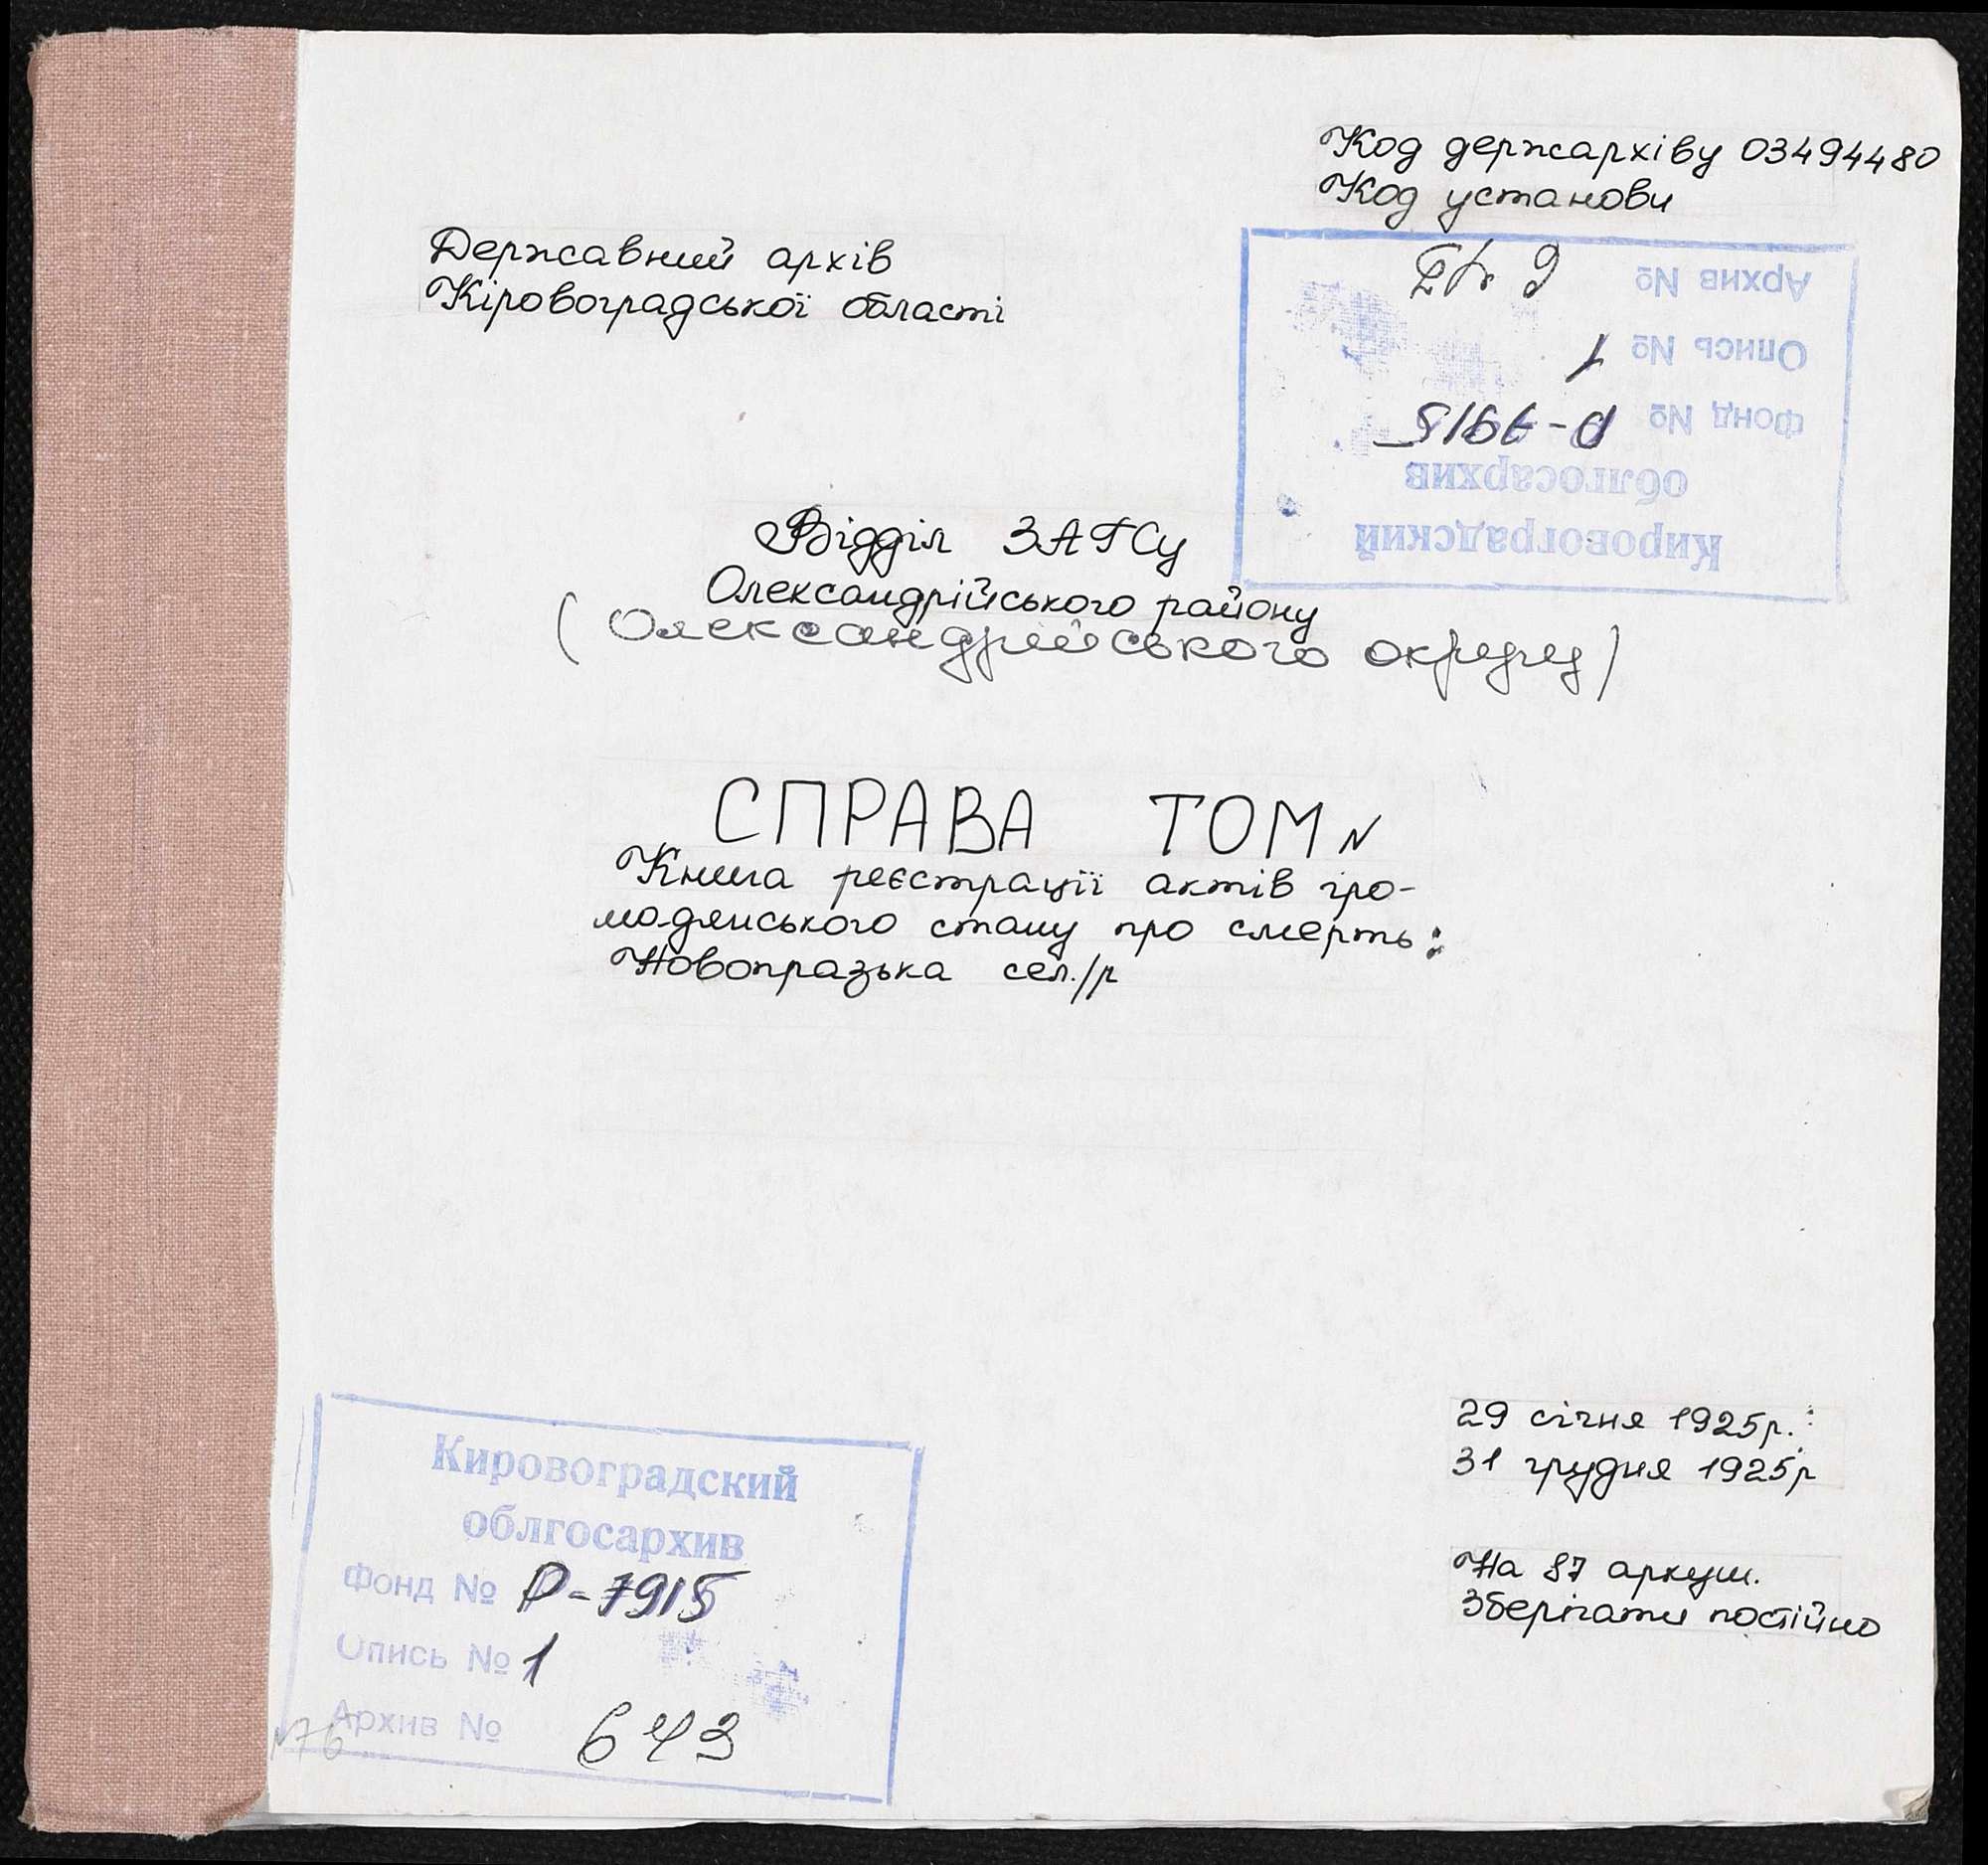 Код держархіву 03494480
Код установи
Державний архів
Кіровоградської області
Кировоградский
облгосархив
Фонд № Р-7915
Опись № 1
Архив № 643
Відділ ЗАГСу
Олександрійського району
(Олександрійського округу)
СПРАВА ТОМ N
Книга реєстрації актів гро-
мадянського стану про смерть:
Новопразька сел./р
29 січня 1925р.:
31 грудня 1925р
На 87 аркуш.
Зберігати постійно
Кировоградский
облгосархив
Фонд № Р-7915
Опись № 1
Архив № 643
N76